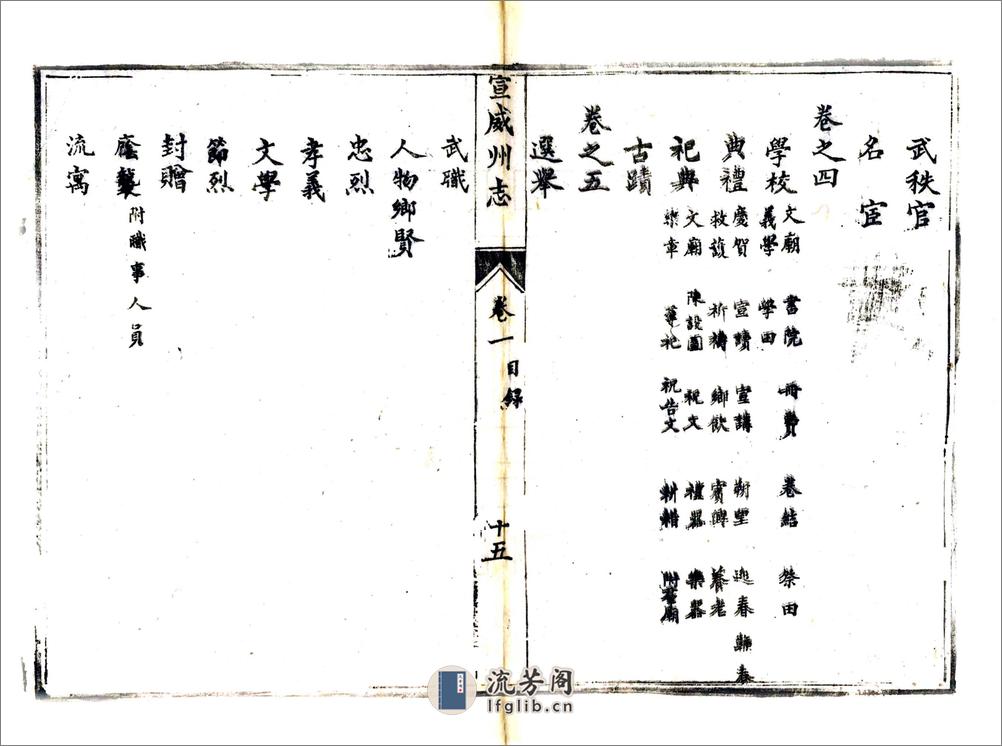 武秩官
名宦
卷之四
學校 文廟 書院 冊費 卷結 祭田
義學 學田
典禮 慶賀 宣讀 宣講 朔望 迎春 鞭春
救護 祈禱 鄉飲 賓興 養老
祀典 文廟 陳設圖 祝文 禮器 樂器
樂章 群祀 祝告文 耕耤
古蹟
卷之五
選舉
宣威州志
卷一目錄
十五
武職
人物鄉賢
忠烈
孝義
文學
節烈
封贈
廕襲附職事人員
流寓
流芳阁
lfglib.cn